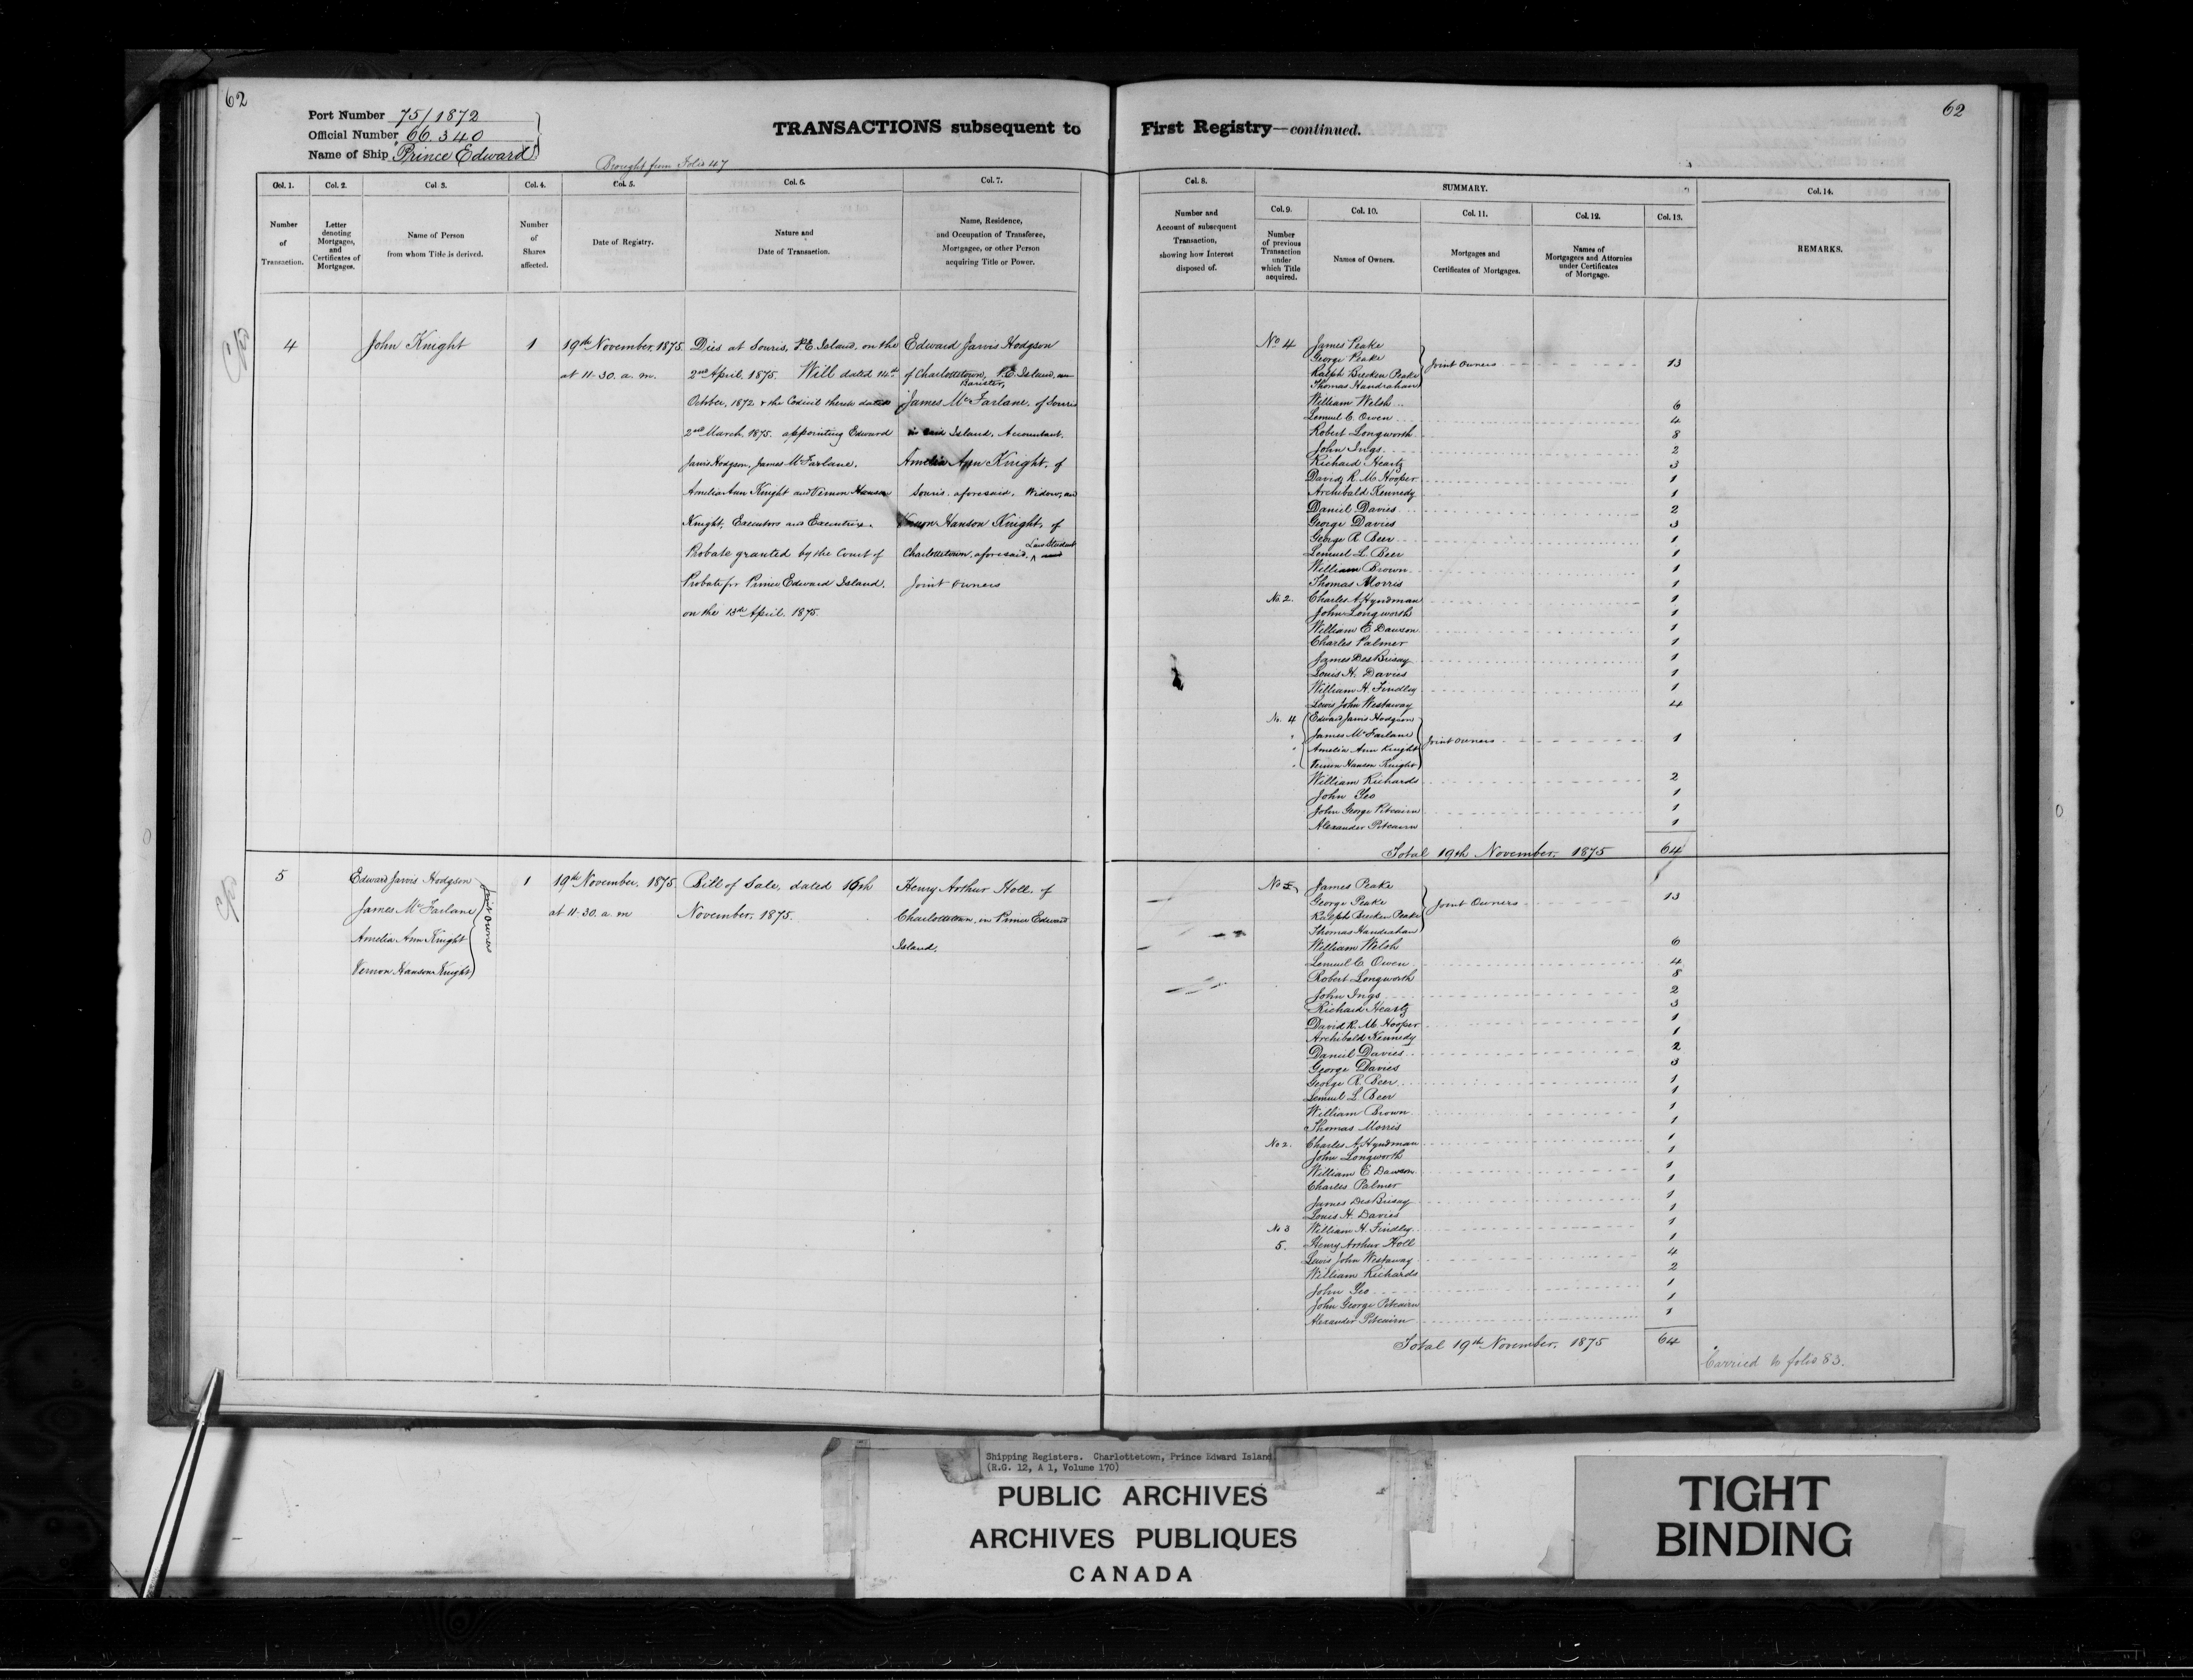 62
Port Number 75/1872
Official Number 66.340
Name of Ship Prince Edward
Brought from Folio 47
TRANSACTIONS subsequent to
Col. 1. Col. 2. Col. 3. Col. 4. Col. 5. Col. 6. Col. 7.
Number of Transaction.
Letter denoting Mortgages, and Certificates of Mortgages.
Name of Person from whom Title is derived.
Number of Shares affected.
Date of Registry.
Nature and Date of Transaction.
Name, Residence, and Occupation of Transferee, Mortgagee, or other Person acquiring Title or Power.
4
John Knight
1
19th November, 1875
at 11.30. a. m.
Dies at Souris, P.E. Island, on the
2nd April, 1875. Will dated 14th
October, 1872 & the Codicil thereto dated
2nd March, 1875. appointing Edward
Jarvis Hodgson, James McFarlane,
Amelia Ann Knight and Vernon Hanson
Knight, Executors and Executrix.
Probate granted by the Court of
Probate for Prince Edward Island,
on the 13th April, 1875.
Edward Jarvis Hodgson
of Charlottetown, P.E. Island,
Barister,
James McFarlane, of Souris
in said Island, Accountant,
Amelia Ann Knight, of
Souris, aforesaid, Widow, and
Vernon Hanson Knight, of
Charlottetown, aforesaid, Law Student
Joint Owners
5
Edward Jarvis Hodgson
James McFarlane
Amelia Ann Knight
Vernon Hanson Knight
Joint Owners
1
19th November, 1875
at 11.30. a. m
Bill of Sale, dated 16th
November, 1875.
Henry Arthur Holl, of
Charlottetown, in Prince Edward
Island.
62
First Registry—continued.
Col. 8. SUMMARY. Col. 14.
Col. 9. Col. 10. Col. 11. Col. 12. Col. 13.
Number and Account of subsequent Transaction, showing how Interest disposed of.
Number of previous Transaction under which Title acquired.
Names of Owners.
Mortgages and Certificates of Mortgages.
Names of Mortgagees and Attornies under Certificates of Mortgage.
REMARKS.
No 4 James Peake
George Peake
Ralph Brecken Peake
Thomas Handrahan
Joint Owners 13
William Welsh 6
Lemuel C. Owen 4
Robert Longworth 8
John Ings 2
Richard Heartz 3
David R. M. Hooper 1
Archibald Kennedy 1
Daniel Davies 2
George Davies 3
George R. Beer 1
Lemuel L. Beer 1
William Brown 1
Thomas Morris 1
No. 2. Charles A. Hyndman 1
John Longworth 1
William E. Dawson 1
Charles Palmer 1
James DesBrisay 1
Louis H. Davies 1
William H. Findley 1
Lewis John Westaway 4
No. 4 Edward Jarvis Hodgson
James McFarlane
Amelia Ann Knight
Vernon Hanson Knight
Joint Owners 1
William Richards 2
John Yeo 1
John George Pitcairn 1
Alexander Pitcairn 1
Total 19th November, 1875 64
James Peake
George Peake
Ralph Brecken Peake
Thomas Handrahan
Joint Owners 13
William Welsh 6
Lemuel C. Owen 4
Robert Longworth 8
John Ings 2
Richard Heartz 3
David R. M. Hooper 1
Archibald Kennedy 1
Daniel Davies 2
George Davies 3
George R. Beer 1
Lemuel L. Beer 1
William Brown 1
Thomas Morris 1
No 2. Charles A. Hyndman 1
John Longworth 1
William E Dawson 1
Charles Palmer 1
James DesBrisay 1
Louis H. Davies 1
No 3 William H. Findley 1
5. Henry Arthur Holl 1
Lewis John Westaway 4
William Richards 2
John Yeo 1
John George Pitcairn 1
Alexander Pitcairn 1
Total 19th November, 1875 64
Carried to folio 83.
Shipping Registers. Charlottetown, Prince Edward Island
(R.G. 12, A 1, Volume 170)
PUBLIC ARCHIVES
ARCHIVES PUBLIQUES
CANADA
TIGHT
BINDING